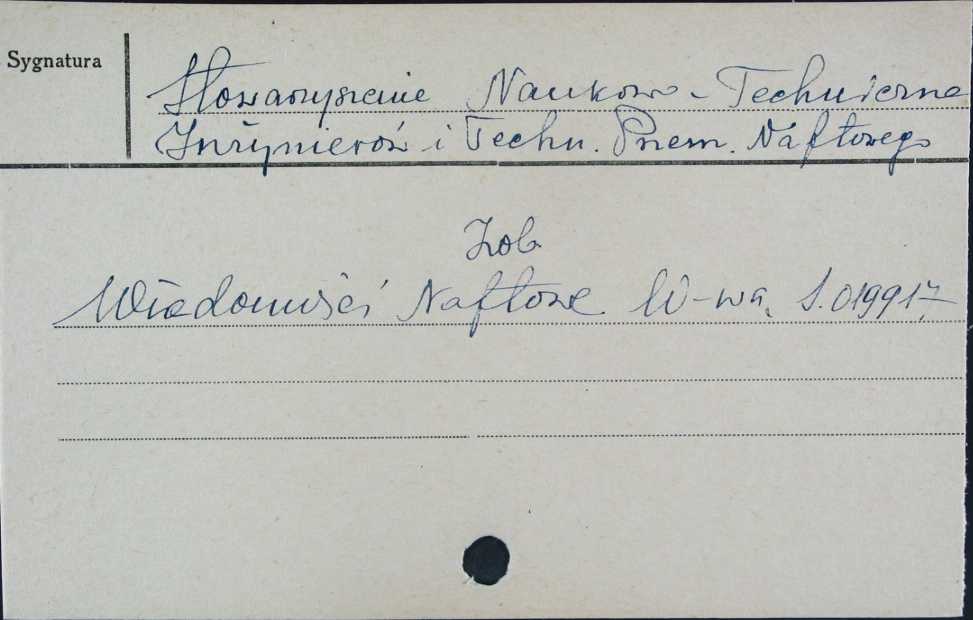 Sygnatura
Stowarzyszenie Naukowo-Techniczne
Inżynierów i Techn. Przem. Naftowego
Zob
Wiadomości Naftowe W-wa, S.019917